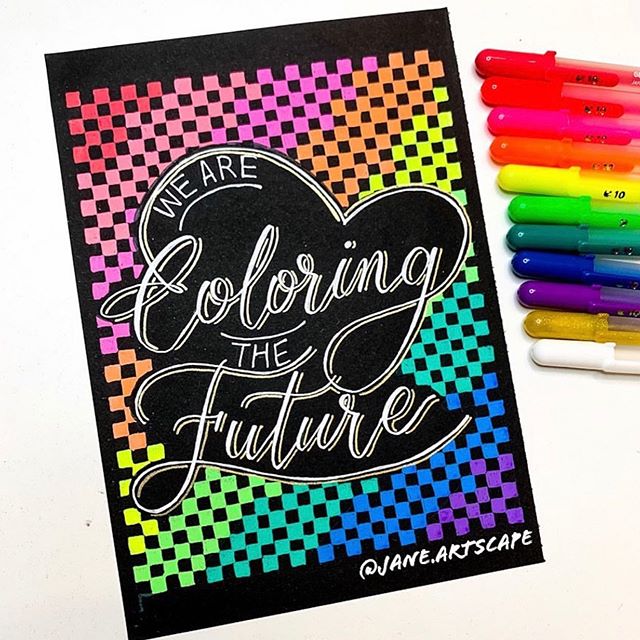 WE ARE
Coloring
THE
Future
@JANE.ARTSCAPE
10